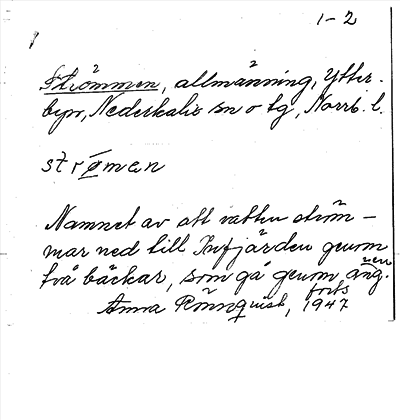 1-2
Strömmen, allmänning, Ytter-
byn, Nederkalix sn o tg, Norrb. l.
strømen
Namnet av att vatten ström-
mar ned till Inrfjärden genom
två bäckar, som gå genom äng.
Anna Rönnquist, 1947
forts